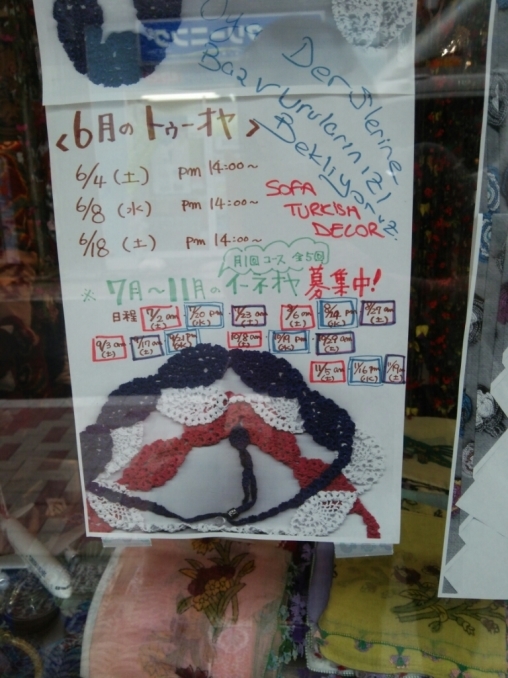 Oya
Derslerine
Başvurularınızı
Bekliyoruz.
<6月の トゥーオヤ>
6/4 (土) pm 14:00~
6/8 (水) pm 14:00~
6/18 (土) pm 14:00~
SOFA
TURKISH
DECOR
月1回コース 全5回
※ 7月~11月の イーネオヤ 募集中!
日程 7/2 am (土) 7/20 pm (水) 7/23 am (土) 8/6 am (土) 8/24 pm (水) 8/27 am (土)
9/3 am (土) 9/17 am (土) 9/21 pm (水) 10/8 am (土) 10/19 pm (水) 10/29 am (土)
11/5 am (土) 11/16 pm (水) 11/19 am (土)